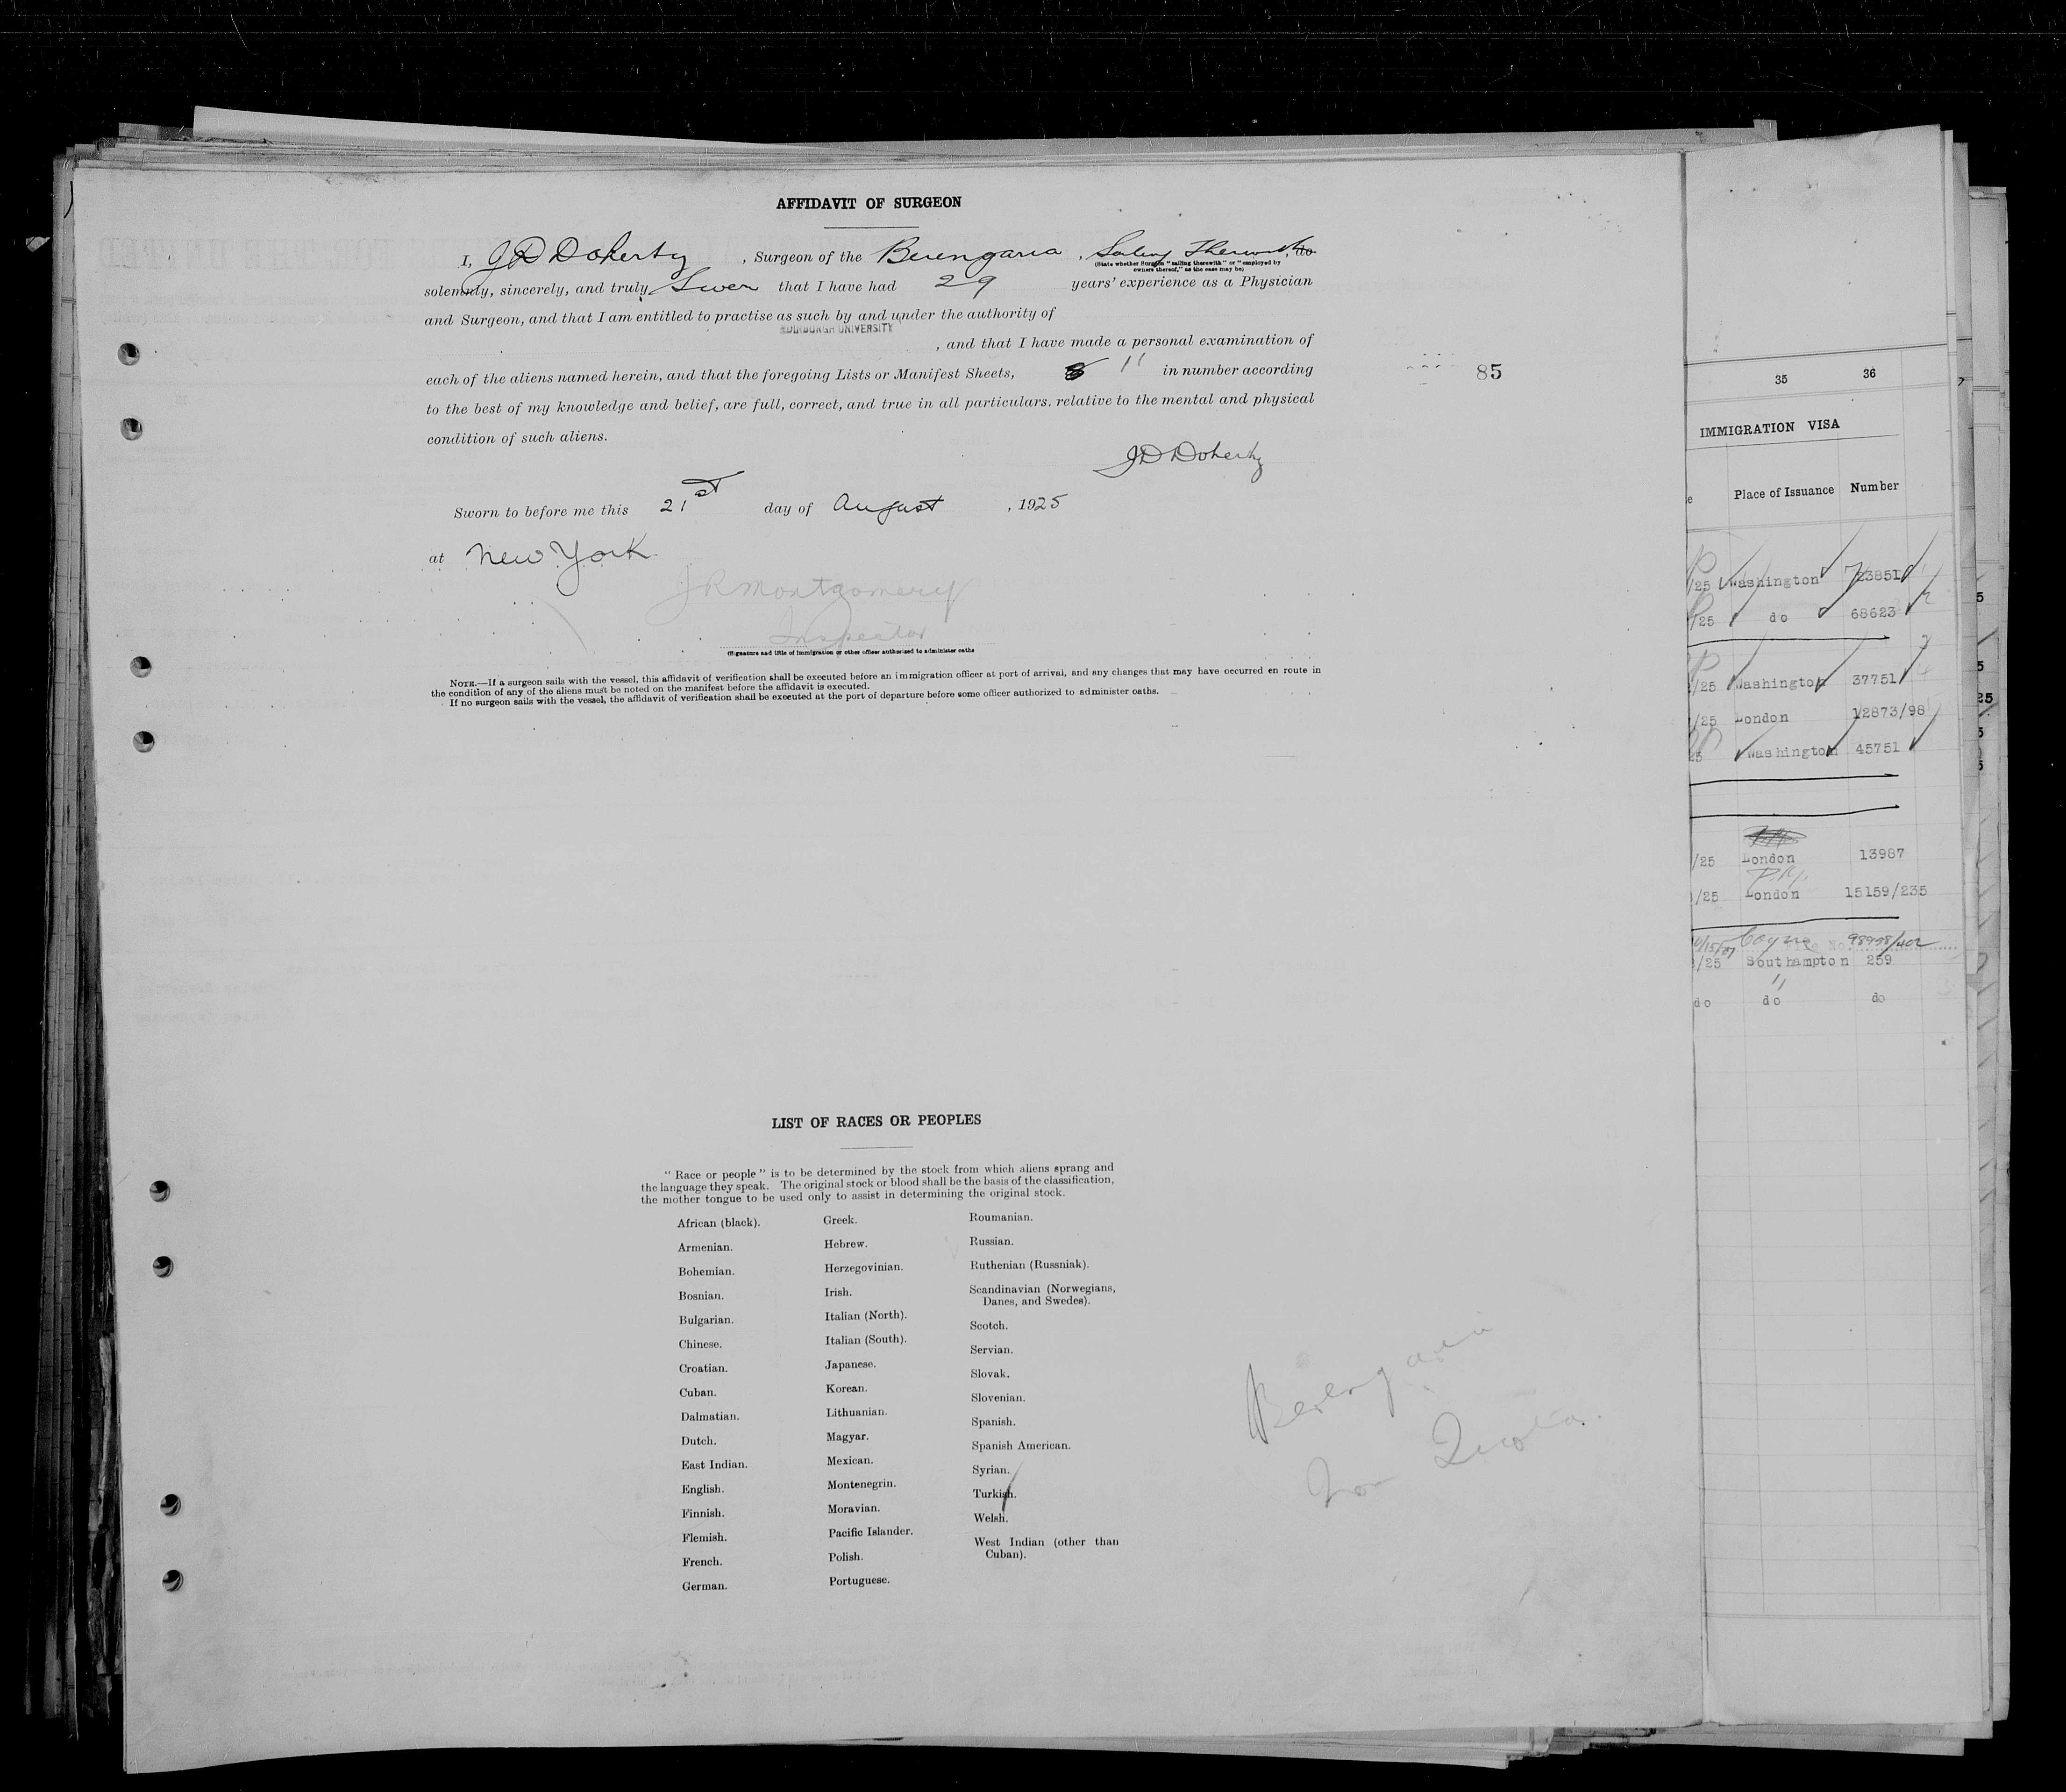 AFFIDAVIT OF SURGEON
I, JD Doherty, Surgeon of the Berengaria, Sailing Therewith, do
(State whether Surgeon "sailing therewith" or "employed by
owners thereof," as the case may be)
solemnly, sincerely, and truly Swear that I have had 29 years' experience as a Physician
and Surgeon, and that I am entitled to practise as such by and under the authority of
EDINBURGH UNIVERSITY
, and that I have made a personal examination of
each of the aliens named herein, and that the foregoing Lists or Manifest Sheets, 11 in number according
to the best of my knowledge and belief, are full, correct, and true in all particulars. relative to the mental and physical
condition of such aliens.
JD Doherty
Sworn to before me this 21st day of August, 1925
at New York
JR Montgomery
Inspector
(Signature and title of immigration or other officer authorised to administer oaths
NOTE.—If a surgeon sails with the vessel, this affidavit of verification shall be executed before an immigration officer at port of arrival, and any changes that may have occurred en route in
the condition of any of the aliens must be noted on the manifest before the affidavit is executed.
If no surgeon sails with the vessel, the affidavit of verification shall be executed at the port of departure before some officer authorized to administer oaths.
85
LIST OF RACES OR PEOPLES
"Race or people" is to be determined by the stock from which aliens sprang and
the language they speak. The original stock or blood shall be the basis of the classification,
the mother tongue to be used only to assist in determining the original stock.
African (black).
Armenian.
Bohemian.
Bosnian.
Bulgarian.
Chinese.
Croatian.
Cuban.
Dalmatian.
Dutch.
East Indian.
English.
Finnish.
Flemish.
French.
German.
Greek.
Hebrew.
Herzegovinian.
Irish.
Italian (North).
Italian (South).
Japanese.
Korean.
Lithuanian.
Magyar.
Mexican.
Montenegrin.
Moravian.
Pacific Islander.
Polish.
Portuguese.
Roumanian.
Russian.
Ruthenian (Russniak).
Scandinavian (Norwegians,
Danes, and Swedes).
Scotch.
Servian.
Slovak.
Slovenian.
Spanish.
Spanish American.
Syrian.
Turkish.
Welsh.
West Indian (other than
Cuban).
Berengaria
Non Quota.
35 36
IMMIGRATION VISA
Place of Issuance Number
/25 Washington 23851
/25 do 68623
/25 Washington 37751
/25 London 12873/98
25 Washington 45751
/25 London 13987
/25 London 15159/235
/25 Southampton 259
do do do